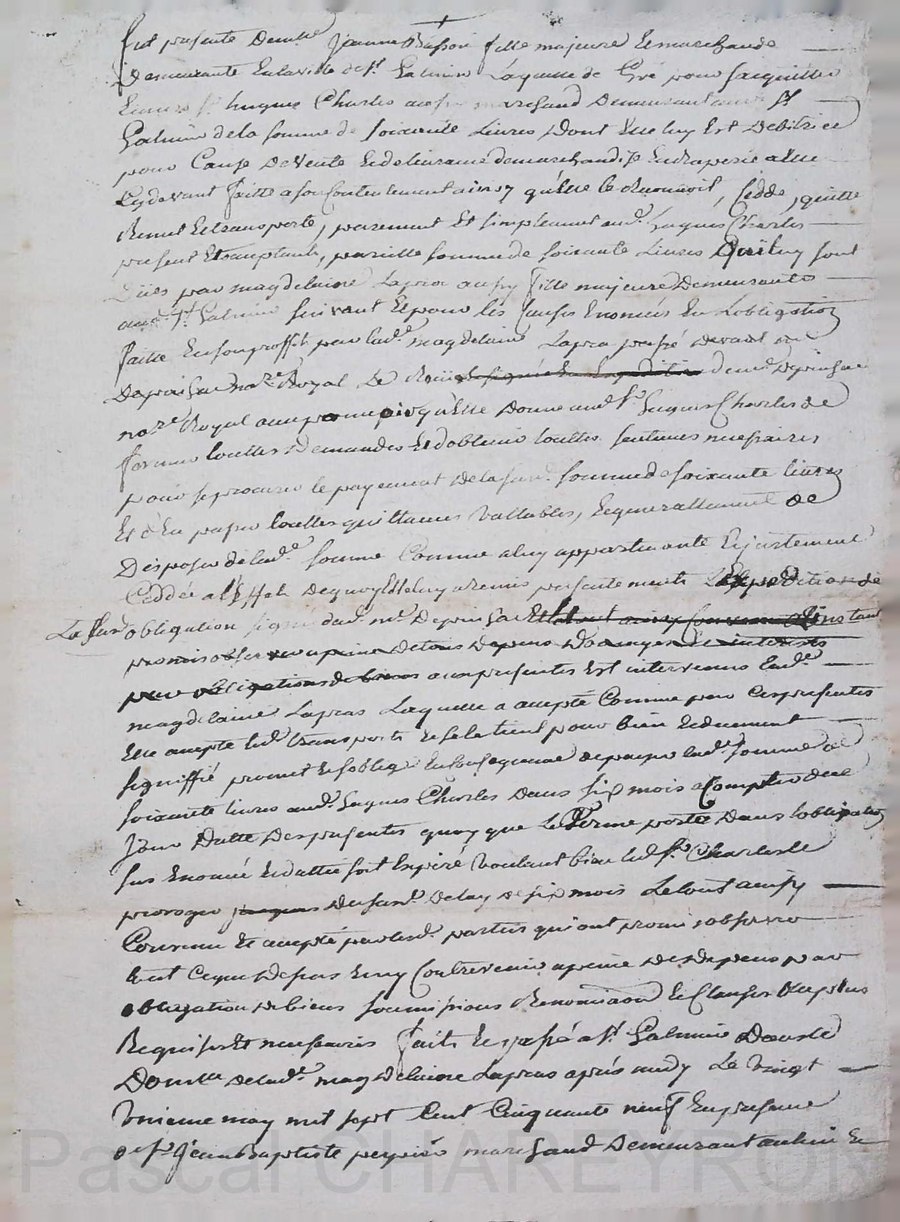 fut presente Demlle Jeanne Basson fille majeure Et marchande
Demeurante En la ville de St Galmier Laquelle de Gré pour s'aquitter
Envers sr huques Charles aussy marchand Demeurant aud St
Galmier de la somme de soixante Livres Dont Elle luy Est Debitrice
pour Cause De Vente Et delivrance de marchandise En draperie a Elle
Cy devant faitte a son Contentement ainsy qu'Elle le Reconnoit, Cedde, quitte
Remet Et transporte, purement Et simplement aud. huques Charles
present Et acceptant, pareille somme de soixante Livres Qui luy sont
Dües par magdelaine Lapra aussy fille majeure Demeurante
aud St Galmier suivant Et pour les Causes Enoncées En L'obligation
faitte En son proffit par lad. magdelaine Lapra passé devant me
Depuisac nore Royal Le Dud me Depuisac
nore Royal au moyen de quoy qu'Elle Donne aud sr huques Charles de
former touttes Demandes Et d'obtenir touttes sentences necessaires
pour se procurer le payement de la susd. somme de soixante livres
Et d'En passer touttes quittances vallables, Et generallement de
Disposer de lad. somme Comme a luy appartenante Et justement
Ceddée a l'Effet De quoy Elle luy a Remis presentement L'Expedition de
La susd obligation signée dud. me Depuisac
promis observer a peine de tous Depens Domages Et interests
par obligations de biens aux presentes Est intervenue lad.
magdelaine Lapras Laquelle a accepté Comme par Ces presentes
Elle accepte led. transport Et se le tient pour bien Et duement
signiffié promet Et s'oblige En Consequence de payer lad. somme de
soixante livres aud. huques Charles Dans six mois a Compter de ce
Jour Datte Des presentes quoy que Le Terme porté Dans l'obligation
sus Enoncée Et dattée soit Expiré Voulant bien led. sr Charles le
proroger jusques Dud susd. Delay de six mois Le tout ainsy
Convenu Et accepté par lesd. parties qui ont promis observer
tout Ce que Dessus Et n'y Contrevenir a peine Des Depens par
obligation De biens soumissions Renonciaon Et Clauses
Requises Et necessaires fait Et passé a St Galmier Dans le
Domlle de lad. magdelaine Lapras après midy Le vingt
unieme may mil sept Cent Cinquante neuf En presence
de sr Jean Baptiste peyrier marchand Demeurant aud lieu Et
Pascal CHAREYRON